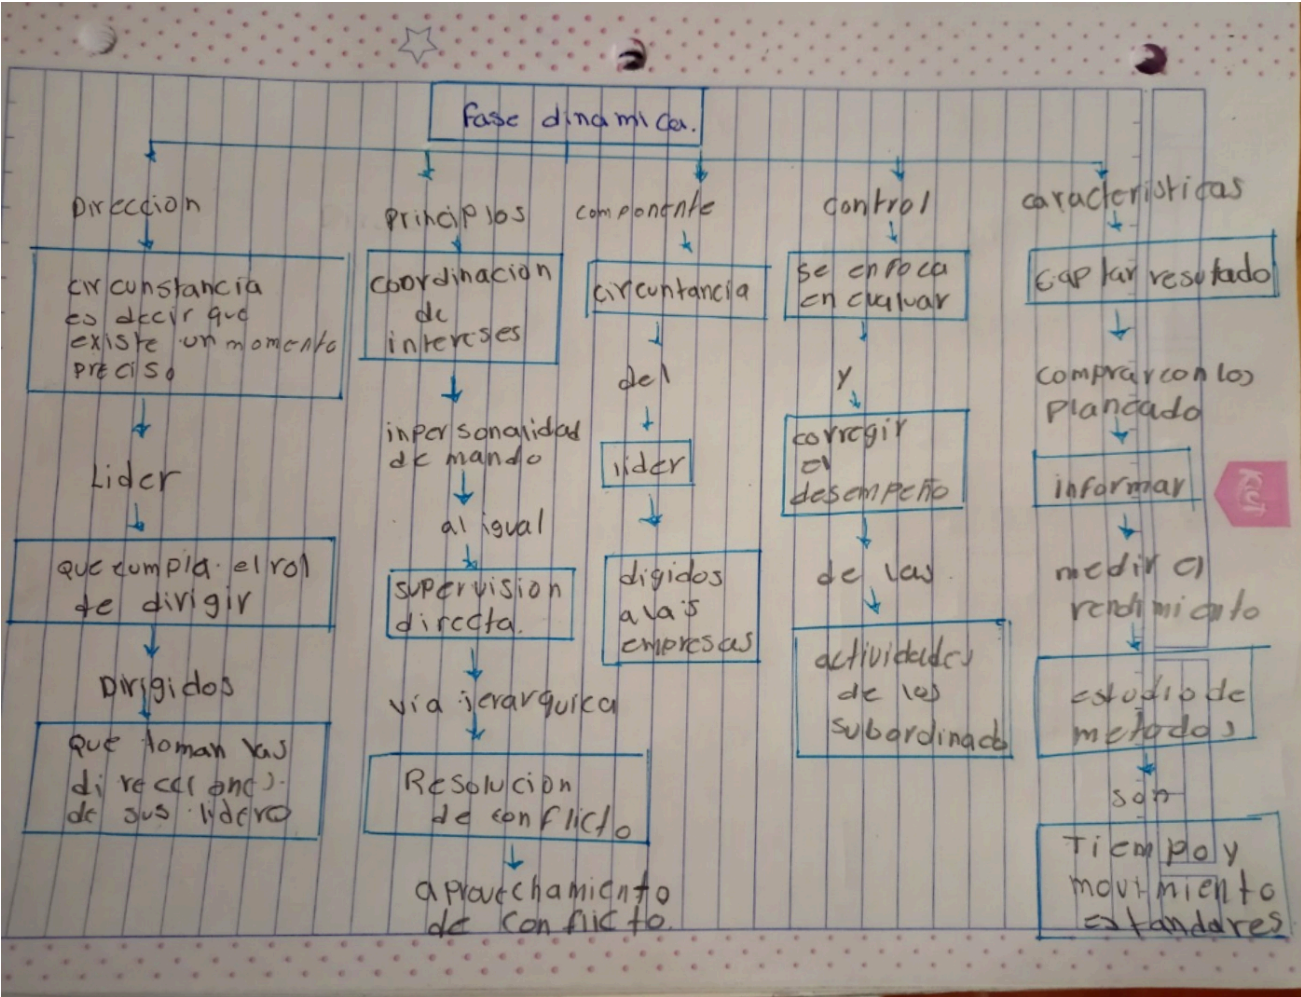 Fase dinamica.
Direccion
circunstancia
es decir que
existe un momento
preciso
Lider
que cumpla el rol
de dirigir
Dirigidos
que toman las
direcciones
de sus lidero
principios
coordinacion
de
intereses
inpersonalidad
de mando
al igual
supervision
directa.
via jerarquica
Resolucion
de conflicto
aprovechamiento
de conflicto.
componente
circuntancia
del
lider
digidos
a las
empresas
control
se enfoca
en evaluar
y
corregir
el
desempeño
de las
actividades
de los
subordinado
caracteristicas
captar resutado
comprar con los
planeado
informar
medir el
rendimiento
estudio de
metodos
son
Tiempo y
movimiento
estandares